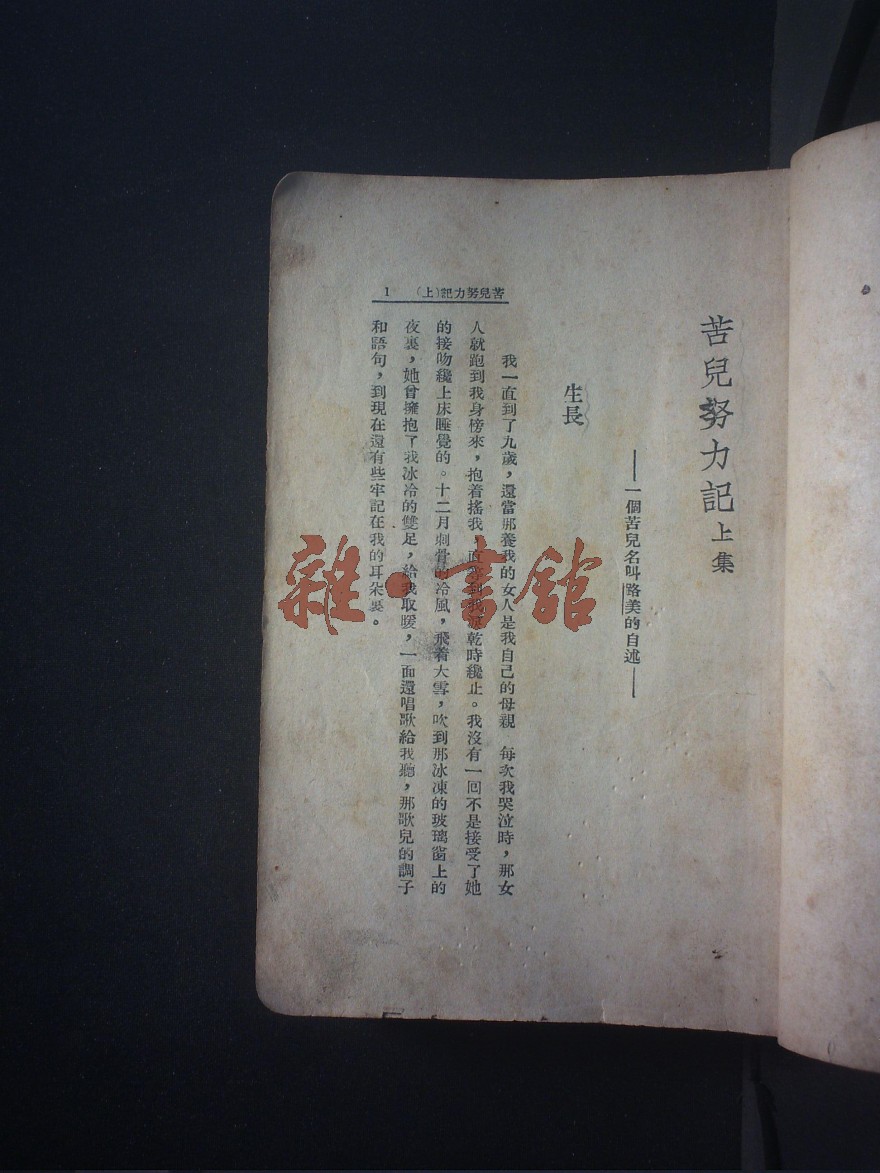 苦兒努力記上集
——一個苦兒名叫路美的自述——
生長
我一直到了九歲，還當那養我的女人是我自己的母親　每次我哭泣時，那女
人就跑到我身傍來，抱着搖我，直等到我淚乾時纔止。我沒有一回不是接受了她
的接吻纔上床睡覺的。十二月刺骨的冷風，飛着大雪，吹到那冰凍的玻璃窗上的
夜裏，她曾擁抱了我冰冷的雙足，給我取暖，一面還唱歌給我聽，那歌兒的調子
和語句，到現在還有些牢記在我的耳朵裏。
苦兒努力記（上）　1
雜·書館